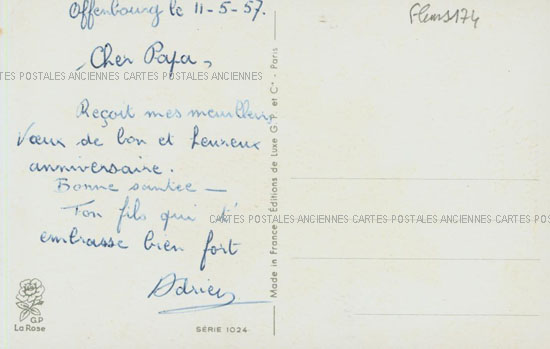 Offenbourg le 11-5-57.
Cher Papa,
CARTES POSTALES ANCIENNES CARTES POSTALES ANCIENNES
Reçoit mes meilleurs
Vœux de bon et heureux
anniversaire.
Bonne santée —
Ton fils qui t'
embrasse bien fort
Adrien
CARTES POSTALES ANCIENNES CARTES POSTALES ANCIENNES CARTES POSTALES
G.P
La Rose
SÉRIE 1024
Made in France - Éditions de Luxe G. P. et Cie - Paris
Fleurs174